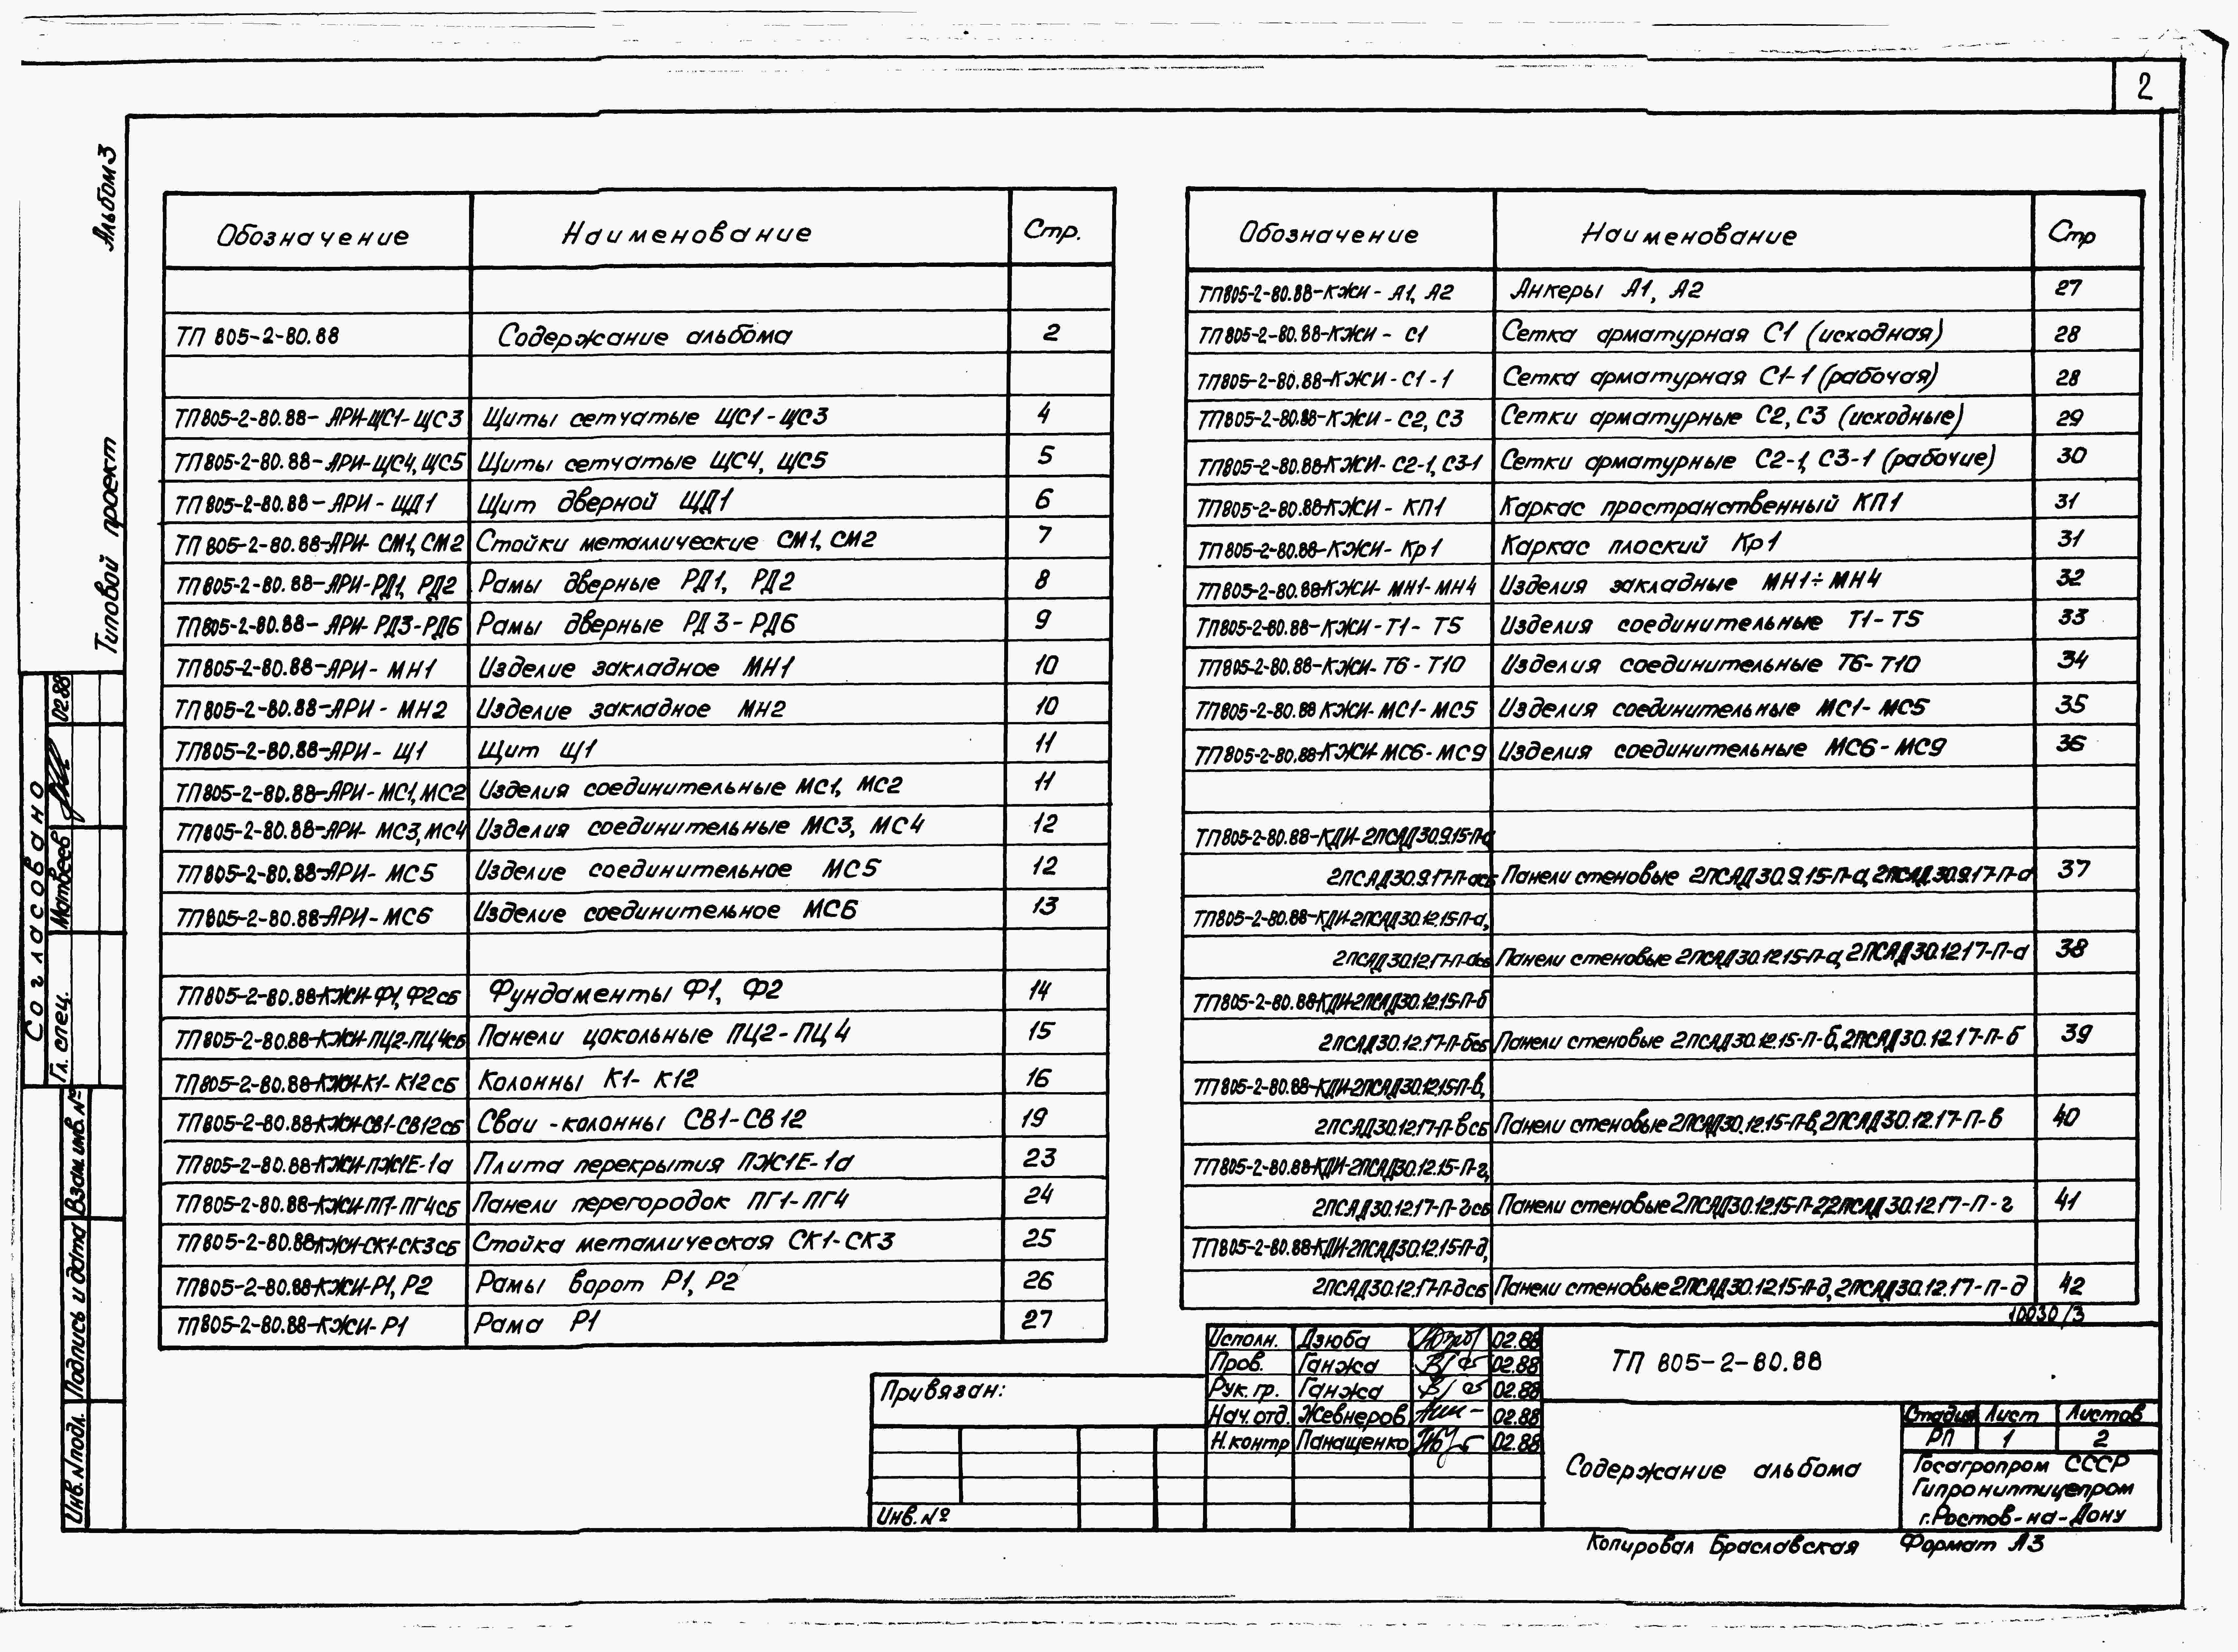 2
Альбом 3
Типовой проект
Обозначение Наименование Стр.
ТП 805-2-80.88 Содержание альбома 2
ТП805-2-80.88-АРИ-ЩС1-ЩС3 Щиты сетчатые ЩС1-ЩС3 4
ТП805-2-80.88-АРИ-ЩС4, ЩС5 Щиты сетчатые ЩС4, ЩС5 5
ТП805-2-80.88-АРИ-ЩД1 Щит дверной ЩД1 6
ТП805-2-80.88-АРИ-СМ1, СМ2 Стойки металлические СМ1, СМ2 7
ТП805-2-80.88-АРИ-РД1, РД2 Рамы дверные РД1, РД2 8
ТП805-2-80.88-АРИ-РД3-РД6 Рамы дверные РД3-РД6 9
ТП805-2-80.88-АРИ-МН1 Изделие закладное МН1 10
ТП805-2-80.88-АРИ-МН2 Изделие закладное МН2 10
ТП805-2-80.88-АРИ-Щ1 Щит Щ1 11
ТП805-2-80.88-АРИ-МС1, МС2 Изделия соединительные МС1, МС2 11
ТП805-2-80.88-АРИ-МС3, МС4 Изделия соединительные МС3, МС4 12
ТП805-2-80.88-АРИ-МС5 Изделие соединительное МС5 12
ТП805-2-80.88-АРИ-МС6 Изделие соединительное МС6 13
ТП805-2-80.88-КЖИ-Ф1, Ф2сб Фундаменты Ф1, Ф2 14
ТП805-2-80.88-КЖИ-ПЦ2-ПЦ4сб Панели цокольные ПЦ2-ПЦ4 15
ТП805-2-80.88-КЖИ-К1-К12сб Колонны К1-К12 16
ТП805-2-80.88-КЖИ-СВ1-СВ12сб Сваи-колонны СВ1-СВ12 19
ТП805-2-80.88-КЖИ-ПЖ1Е-1а Плита перекрытия ПЖ1Е-1а 23
ТП805-2-80.88-КЖИ-ПГ1-ПГ4сб Панели перегородок ПГ1-ПГ4 24
ТП805-2-80.88-КЖИ-СК1-СК3сб Стойка металлическая СК1-СК3 25
ТП805-2-80.88-КЖИ-Р1, Р2 Рамы ворот Р1, Р2 26
ТП805-2-80.88-КЖИ-Р1 Рама Р1 27
Обозначение Наименование Стр
ТП805-2-80.88-КЖИ-А1, А2 Анкеры А1, А2 27
ТП805-2-80.88-КЖИ-С1 Сетка арматурная С1 (исходная) 28
ТП805-2-80.88-КЖИ-С1-1 Сетка арматурная С1-1 (рабочая) 28
ТП805-2-80.88-КЖИ-С2, С3 Сетки арматурные С2, С3 (исходные) 29
ТП805-2-80.88-КЖИ-С2-1, С3-1 Сетки арматурные С2-1, С3-1 (рабочие) 30
ТП805-2-80.88-КЖИ-КП1 Каркас пространственный КП1 31
ТП805-2-80.88-КЖИ-Кр1 Каркас плоский Кр1 31
ТП805-2-80.88-КЖИ-МН1-МН4 Изделия закладные МН1÷МН4 32
ТП805-2-80.88-КЖИ-Т1-Т5 Изделия соединительные Т1-Т5 33
ТП805-2-80.88-КЖИ-Т6-Т10 Изделия соединительные Т6-Т10 34
ТП805-2-80.88 КЖИ-МС1-МС5 Изделия соединительные МС1-МС5 35
ТП805-2-80.88-КЖИ-МС6-МС9 Изделия соединительные МС6-МС9 36
ТП805-2-80.88-КДИ-2ПСАД30.9.15-П-а
2ПСАД30.9.17-П-асб Панели стеновые 2ПСАД30.9.15-П-а, 2ПСАД30.9.17-П-а 37
ТП805-2-80.88-КДИ-2ПСАД30.12.15-П-а,
2ПСАД30.12.17-П-асб Панели стеновые 2ПСАД30.12.15-П-а, 2ПСАД30.12.17-П-а 38
ТП805-2-80.88-КДИ-2ПСАД30.12.15-П-б
2ПСАД30.12.17-П-бсб Панели стеновые 2ПСАД30.12.15-П-б, 2ПСАД30.12.17-П-б 39
ТП805-2-80.88-КДИ-2ПСАД30.12.15-П-в,
2ПСАД30.12.17-П-всб Панели стеновые 2ПСАД30.12.15-П-в, 2ПСАД30.12.17-П-в 40
ТП805-2-80.88-КДИ-2ПСАД30.12.15-П-г,
2ПСАД30.12.17-П-гсб Панели стеновые 2ПСАД30.12.15-П-г, 2ПСАД30.12.17-П-г 41
ТП805-2-80.88-КДИ-2ПСАД30.12.15-П-д,
2ПСАД30.12.17-П-дсб Панели стеновые 2ПСАД30.12.15-П-д, 2ПСАД30.12.17-П-д 42
10030/3
Согласовано
Гл. спец. Матвеев 02.88
Взам.инв.№
Подпись и дата
Инв.№подл.
Привязан:
Инв.№
Исполн. Дзюба 02.88
Пров. Ганжа 02.88
Рук. гр. Ганжа 02.88
Нач. отд. Жевнеров 02.88
Н.контр Панащенко 02.88
ТП 805-2-80.88
Содержание альбома
Стадия Лист Листов
РП 1 2
Госагропром СССР
Гипрониптицепром
г.Ростов-на-Дону
Копировал Браславская Формат А3